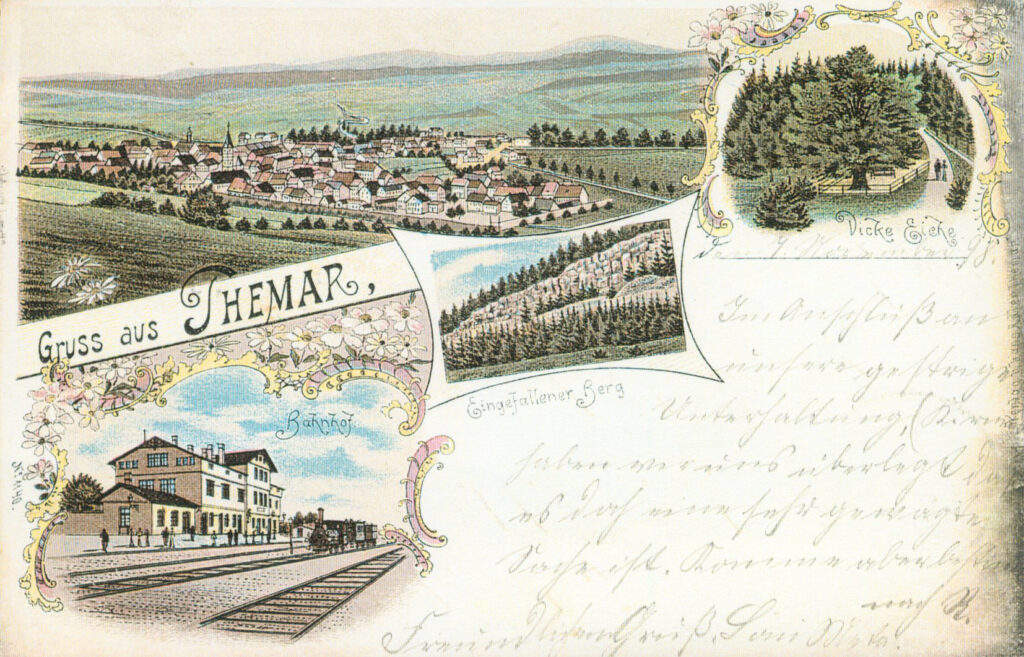 Gruss aus THEMAR,
Vicke Eiche
Eingefallener Berg
Bahnhof
98.
Im Anschluß an
unsere gestrige
Unterhaltung, (
haben wir uns überlegt,
es doch eine sehr gewagte
Sache ist. Komme aber
nach
Freundlichen Gruß,